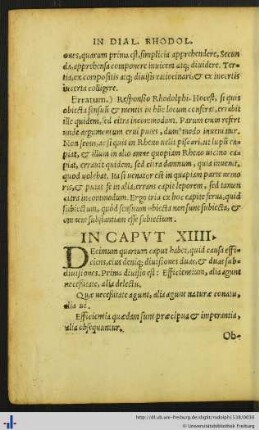 IN DIAL. RHODOL.
ones, quarum prima est, simplicia apprehendere, Secun
da, apprehensa componere inuicem atq; diuidere. Ter-
tia, ex compositis atq; diuisis ratiocinari, & ex incertis
incerta colligere.
Erratum.) Responsio Rodolphi. Hoc est, si quis
obiecta sensus & mentis in hûc locum conferat, errabit
ille quidem, sed citra incommodum. Parum enim refert
unde argumentum erui putet, dum modo inueniatur.
Non secus, ac si quis in Rheno uelit piscari, ut lupũ ca-
piat, & illum in alio amne quopiam Rheno uicino ca-
piat, errauit quidem, sed citra damnum, quia inuenit,
quod uolebat. Ita si uenator est in quapiam parte nemo
ris, & putat se in alia, errans capit leporem, sed tamen
citra incommodum. Ergo tria ex hoc capite serua, quid
subiectum, quòd sensuum obiecta non sunt subiecta, &
omnem substantiam esse subiectum.
IN CAPVT XIIII.
DEcimum quartum caput habet, quid causa effi-
ciens, eius deniq; diuisiones duas, & duas sub-
diuisiones. Prima diuisio est: Efficientium, alia agunt
necessitate, alia delectu.
Quæ necessitate agunt, alia agunt naturæ conatu,
alia ui.
Efficientia quædam sunt præcipua & imperantia,
alia obsequuntur.
Ob-
http://dl.ub.uni-freiburg.de/diglit/rodolph1538/0030
© Universitätsbibliothek Freiburg